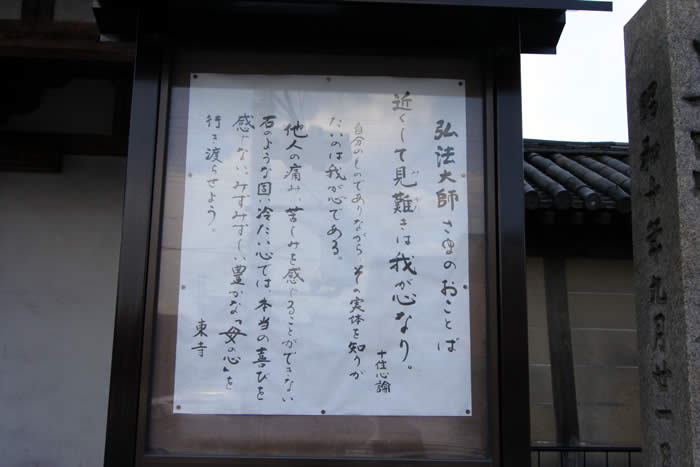 弘法大師さまのおことば
近くして見難きは我が心なり。
十住心論
自分のものでありながらその実体を知りが
たいのは我が心である。
他人の痛み、苦しみを感じることができない
石のような固い冷たい心では、本当の喜びを
感じない。みずみずしい豊かな「母の心」を
行き渡らせよう。
東寺
昭和十年九月廿一日